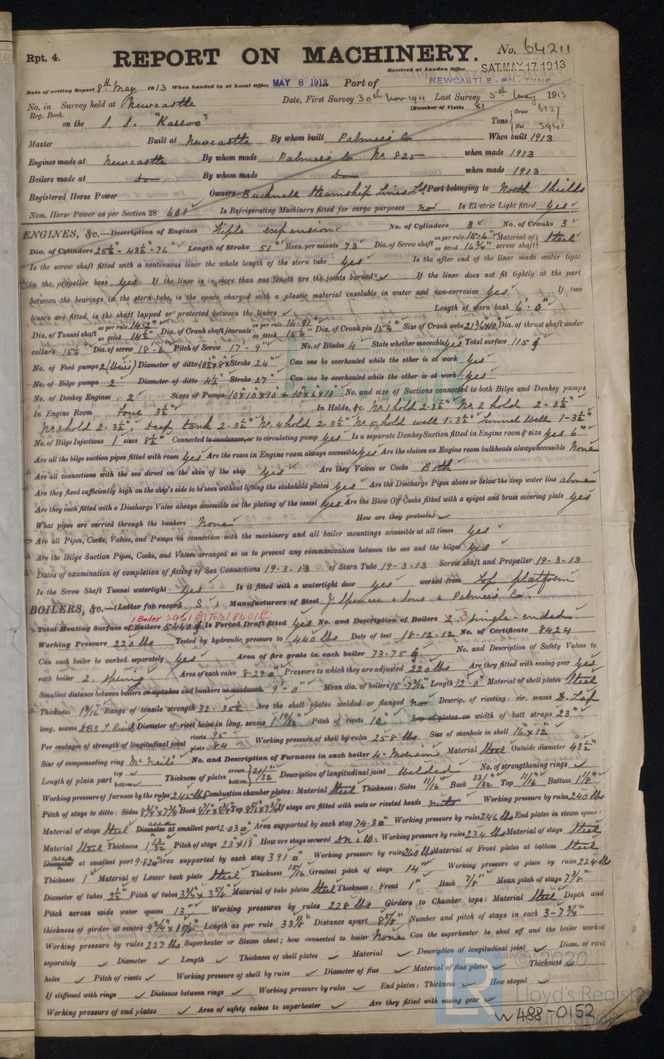 Rpt. 4.
REPORT ON MACHINERY.
No. 64211
Received at London Office SAT. MAY. 17. 1913
Date of writing Report 8th May 1913 When handed in at Local Office MAY 8 1913 Port of NEWCASTLE-ON-TYNE
No. in Reg. Book. Survey held at Newcastle Date, First Survey 30th Nov 1911 Last Survey 5th May 1913
(Number of Visits 81
on the S. S. "Karoo" Tons { Gross 6127 Net
Master Built at Newcastle By whom built Palmers Co When built 1913
Engines made at Newcastle By whom made Palmers Co No 820 when made 1913
Boilers made at Do By whom made Do when made 1913
Registered Horse Power Owners Bucknall Steamship Lines Ld Port belonging to North Shields
Nom. Horse Power as per Section 28 601 Is Refrigerating Machinery fitted for cargo purposes No Is Electric Light fitted Yes
ENGINES, &c.—Description of Engines Triple expansion No. of Cylinders 3 No. of Cranks 3
Dia. of Cylinders Length of Stroke 51" Revs. per minute 73 Dia. of Screw shaft as per rule as fitted Material of screw shaft Steel
Is the screw shaft fitted with a continuous liner the whole length of the stern tube Yes Is the after end of the liner made water tight
in the propeller boss yes If the liner is in more than one length are the joints burned If the liner does not fit tightly at the part
between the bearings in the stern tube, is the space charged with a plastic material insoluble in water and non-corrosive yes If two
liners are fitted, is the shaft lapped or protected between the liners Length of stern bush 6'-0"
Dia. of Tunnel shaft as per rule as fitted Dia. of Crank shaft journals as per rule 14.91" as fitted Dia. of Crank pin 15½" Size of Crank webs Dia. of thrust shaft under
collars 15½" Dia. of screw 18'-6" Pitch of Screw 17'-9" No. of Blades 4 State whether moveable yes Total surface 115
No. of Feed pumps 2 (Weirs) Diameter of ditto Stroke 24" Can one be overhauled while the other is at work yes
No. of Bilge pumps 2 Diameter of ditto 4½" Stroke 27" Can one be overhauled while the other is at work yes
No. of Donkey Engines 2 Sizes of Pumps No. and size of Suctions connected to both Bilge and Donkey pumps
In Engine Room four 3½" In Holds, &c. No 1 hold 2-3½" No 2 hold 2-3½"
No 3 hold 2-3½", Deep tank 2-3½" No 4 hold 2-3½" No 5 hold well 1-3½" Tunnel Well 1-3½"
No. of Bilge Injections 1 sizes 8½" Connected to condenser, or to circulating pump yes Is a separate Donkey Suction fitted in Engine room & size yes 6"
Are all the bilge suction pipes fitted with roses yes Are the roses in Engine room always accessible yes Are the sluices on Engine room bulkheads always accessible None
Are all connections with the sea direct on the skin of the ship yes Are they Valves or Cocks Both
Are they fixed sufficiently high on the ship's side to be seen without lifting the stokehold plates yes Are the Discharge Pipes above or below the deep water line above
Are they each fitted with a Discharge Valve always accessible on the plating of the vessel yes Are the Blow Off Cocks fitted with a spigot and brass covering plate yes
What pipes are carried through the bunkers None How are they protected
Are all Pipes, Cocks, Valves, and Pumps in connection with the machinery and all boiler mountings accessible at all times yes
Are the Bilge Suction Pipes, Cocks, and Valves arranged so as to prevent any communication between the sea and the bilges yes
Dates of examination of completion of fitting of Sea Connections 19-2-13 of Stern Tube 19-3-13 Screw shaft and Propeller 19-3-13
Is the Screw Shaft Tunnel watertight Yes Is it fitted with a watertight door yes worked from Top platform
BOILERS, &c.—(Letter for record S) Manufacturers of Steel J Spencer & Sons & Palmers Co.
Total Heating Surface of Boilers 5440 Is Forced Draft fitted Yes No. and Description of Boilers 2 single-ended
Working Pressure 220 lbs Tested by hydraulic pressure to 440 lbs Date of test 18-12-12 No. of Certificate 8424
Can each boiler be worked separately yes Area of fire grate in each boiler 73.75 No. and Description of Safety Valves to
each boiler 2. Spring Area of each valve 8.290 Pressure to which they are adjusted 220 lbs Are they fitted with easing gear yes
Smallest distance between boilers or uptakes and bunkers or woodwork 9"-0" Mean dia. of boilers Length 12-0" Material of shell plates Steel
Thickness 1 9/16 Range of tensile strength Are the shell plates welded or flanged no Descrip. of riveting: cir. seams D. Lap
long. seams Diameter of rivet holes in long. seams Pitch of rivets 10 Lap of plates or width of butt straps 23"
Per centages of strength of longitudinal joint rivets 95 plate 84 Working pressure of shell by rules 258 lbs Size of manhole in shell 16"x12"
Size of compensating ring McNeils No. and Description of Furnaces in each boiler 4-Morison Material Steel Outside diameter 43½"
Length of plain part top bottom Thickness of plates crown bottom Description of longitudinal joint Welded No. of strengthening rings
Working pressure of furnace by the rules Combustion chamber plates: Material Steel Thickness: Sides 11/16 Back 23/32 Top 11/16 Bottom
Pitch of stays to ditto: Sides Back Top If stays are fitted with nuts or riveted heads nuts Working pressure by rules 240 lbs
Material of stays Steel Diameter at smallest part 2.03 Area supported by each stay 74.3 Working pressure by rules 246 lbs End plates in steam space:
Material Steel Thickness Pitch of stays 23"x13" How are stays secured Working pressure by rules 234 lbs Material of stays Steel
Diameter at smallest part Area supported by each stay 391 Working pressure by rules 260 lbs Material of Front plates at bottom Steel
Thickness 1" Material of Lower back plate Steel Thickness Greatest pitch of stays 14" Working pressure of plate by rules 224 lbs
Diameter of tubes 2½" Pitch of tubes Material of tube plates Steel Thickness: Front 1" Back 7/8" Mean pitch of stays
Pitch across wide water spaces 13" Working pressures by rules 228 lbs Girders to Chamber tops: Material Steel Depth and
thickness of girder at centre Length as per rule Distance apart Number and pitch of stays in each
Working pressure by rules 227 lbs Superheater or Steam chest; how connected to boiler None Can the superheater be shut off and the boiler worked
separately Diameter Length Thickness of shell plates Material Description of longitudinal joint Diam. of rivet
holes Pitch of rivets Working pressure of shell by rules Diameter of flue Material of flue plates Thickness
If stiffened with rings Distance between rings Working pressure by rules End plates: Thickness How stayed
Working pressure of end plates Area of safety valves to superheater Are they fitted with easing gear
© 2020
Lloyd's Register
Foundation
W488-0152